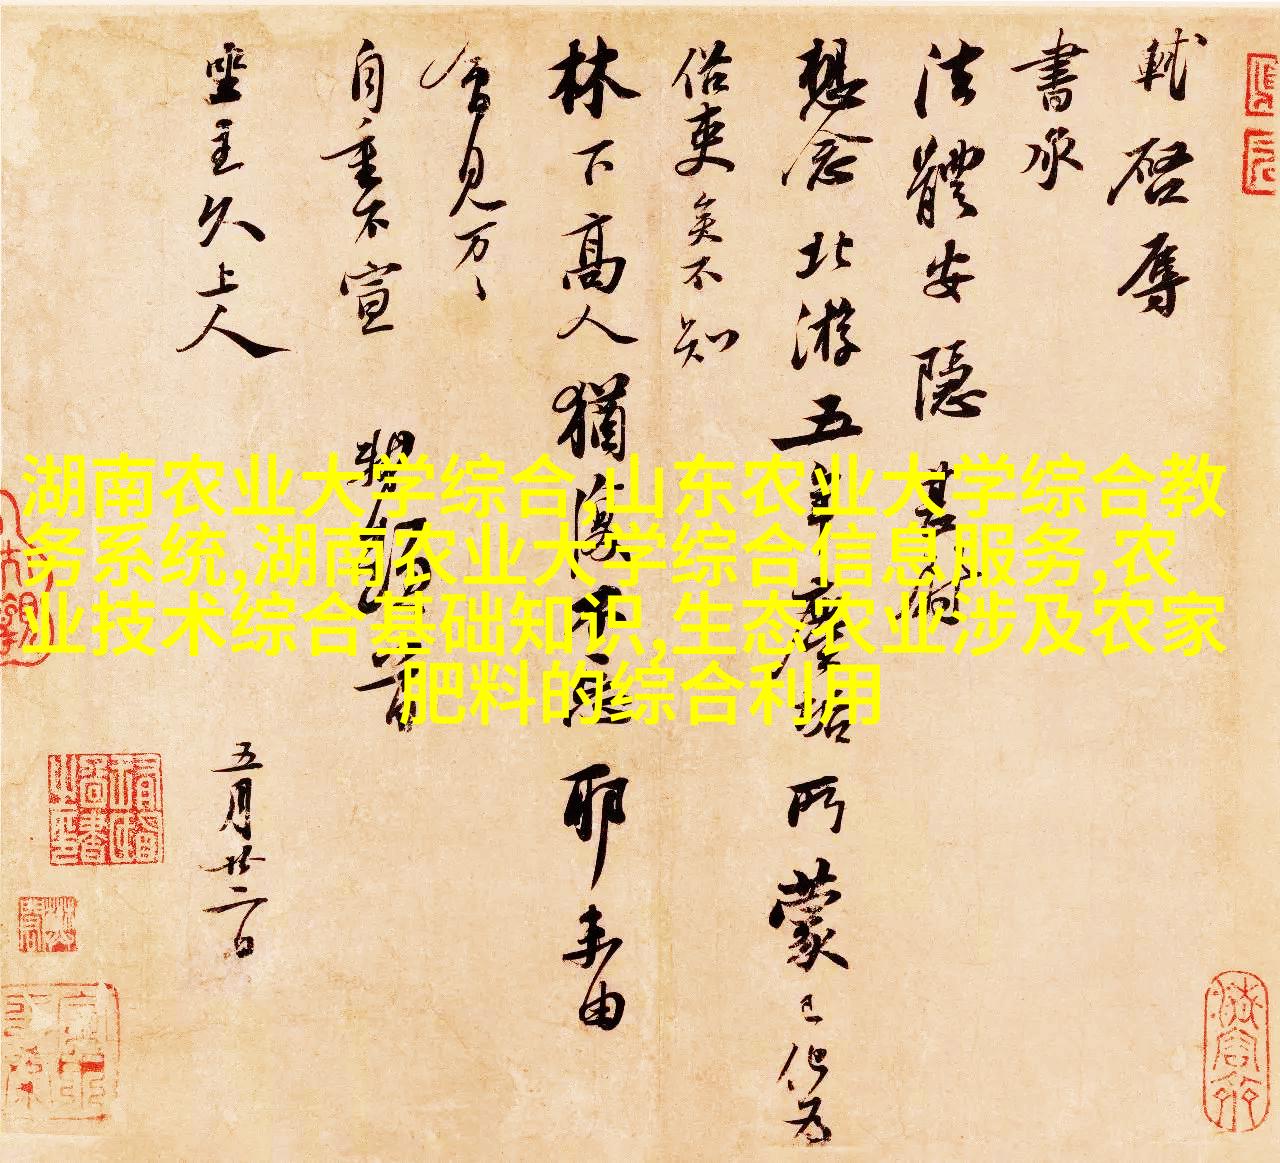 軾啓辱
書承
法體安隱甚慰
想念北游五年塵垢所蒙已化為
俗吏矣不知
林下高人猶復不忘耶未由
會見万〻
自重不宣 軾頓首
坐主久上人
五月廿二日
湖南农业大学综合,山东农业大学综合教
务系统,湖南农业大学综合信息服务,农
业技术综合基础知识,生态农业涉及农家
肥料的综合利用